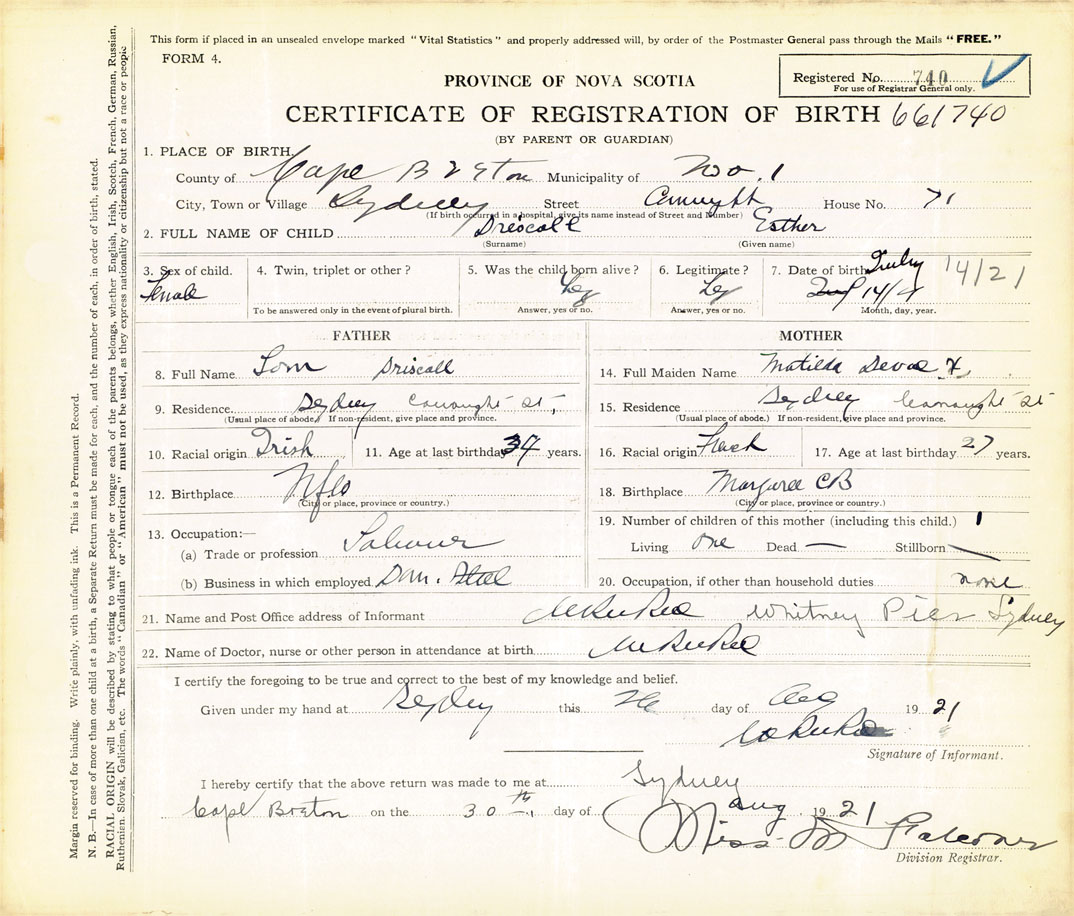 This form if placed in an unsealed envelope marked "Vital Statistics" and properly addressed will, by order of the Postmaster General pass through the Mails "FREE."
FORM 4.
Registered No. 740
For use of Registrar General only.
PROVINCE OF NOVA SCOTIA
CERTIFICATE OF REGISTRATION OF BIRTH 661740
(BY PARENT OR GUARDIAN)
1. PLACE OF BIRTH.
County of Cape Breton Municipality of No. 1
City, Town or Village Sydney Street House No. 71
(If birth occurred in a hospital, give its name instead of Street and Number)
2. FULL NAME OF CHILD Driscoll Esther
(Surname) (Given name)
3. Sex of child. Female
4. Twin, triplet or other?
To be answered only in the event of plural birth.
5. Was the child born alive? Yes
Answer, yes or no.
6. Legitimate? Yes
Answer, yes or no.
7. Date of birth July 14/21
14/
Month, day, year.
FATHER
8. Full Name Tom Driscoll
9. Residence. Sydney Connaught St,
(Usual place of abode.) If non-resident, give place and province.
10. Racial origin Irish 11. Age at last birthday 34 years.
12. Birthplace Nfld
(City or place, province or country.)
13. Occupation:—
(a) Trade or profession Labourer
(b) Business in which employed Dom. Steel
MOTHER
14. Full Maiden Name Matilda
15. Residence Sydney Connaught St
(Usual place of abode.) If non-resident, give place and province.
16. Racial origin French 17. Age at last birthday 27 years.
18. Birthplace Margaree CB
(City or place, province or country.)
19. Number of children of this mother (including this child.) 1
Living One Dead — Stillborn —
20. Occupation, if other than household duties none
21. Name and Post Office address of Informant Whitney Pier Sydney
22. Name of Doctor, nurse or other person in attendance at birth
I certify the foregoing to be true and correct to the best of my knowledge and belief.
Given under my hand at Sydney this day of Aug 1921
Signature of Informant.
I hereby certify that the above return was made to me at Sydney
Cape Breton on the 30th day of Aug 1921
Miss M Falconer
Division Registrar.
Margin reserved for binding. Write plainly, with unfading ink. This is a Permanent Record.
N. B.—In case of more than one child at a birth, a Separate Return must be made for each, and the number of each, in order of birth, stated.
RACIAL ORIGIN will be described by stating to what people or tongue each of the parents belongs, whether English, Irish, Scotch, French, German, Russian,
Ruthenien, Slovak, Galician, etc. The words "Canadian" or "American" must not be used, as they express nationality or citizenship but not a race or people